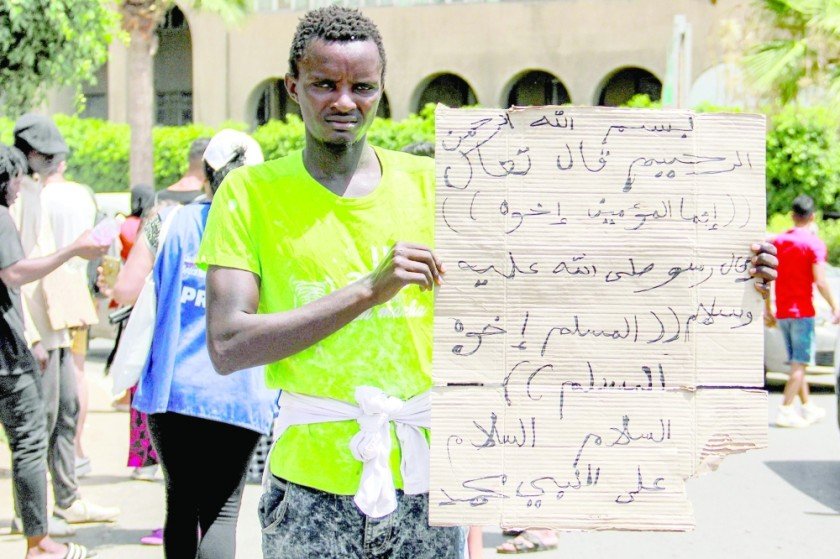 بسم الله الرحمن
الرحيم قال تعال
((إنما المؤمنين إخوه))
وقال رسو صلى الله عليه
وسلام ((المسلم إخوه
المسلم))
السلام السلام
على النبي محمد
PR